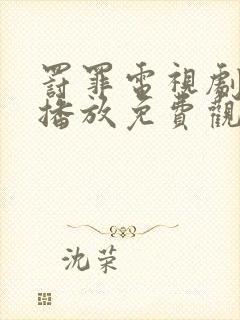 罰罪電視劇
播放免費觀
沈荣